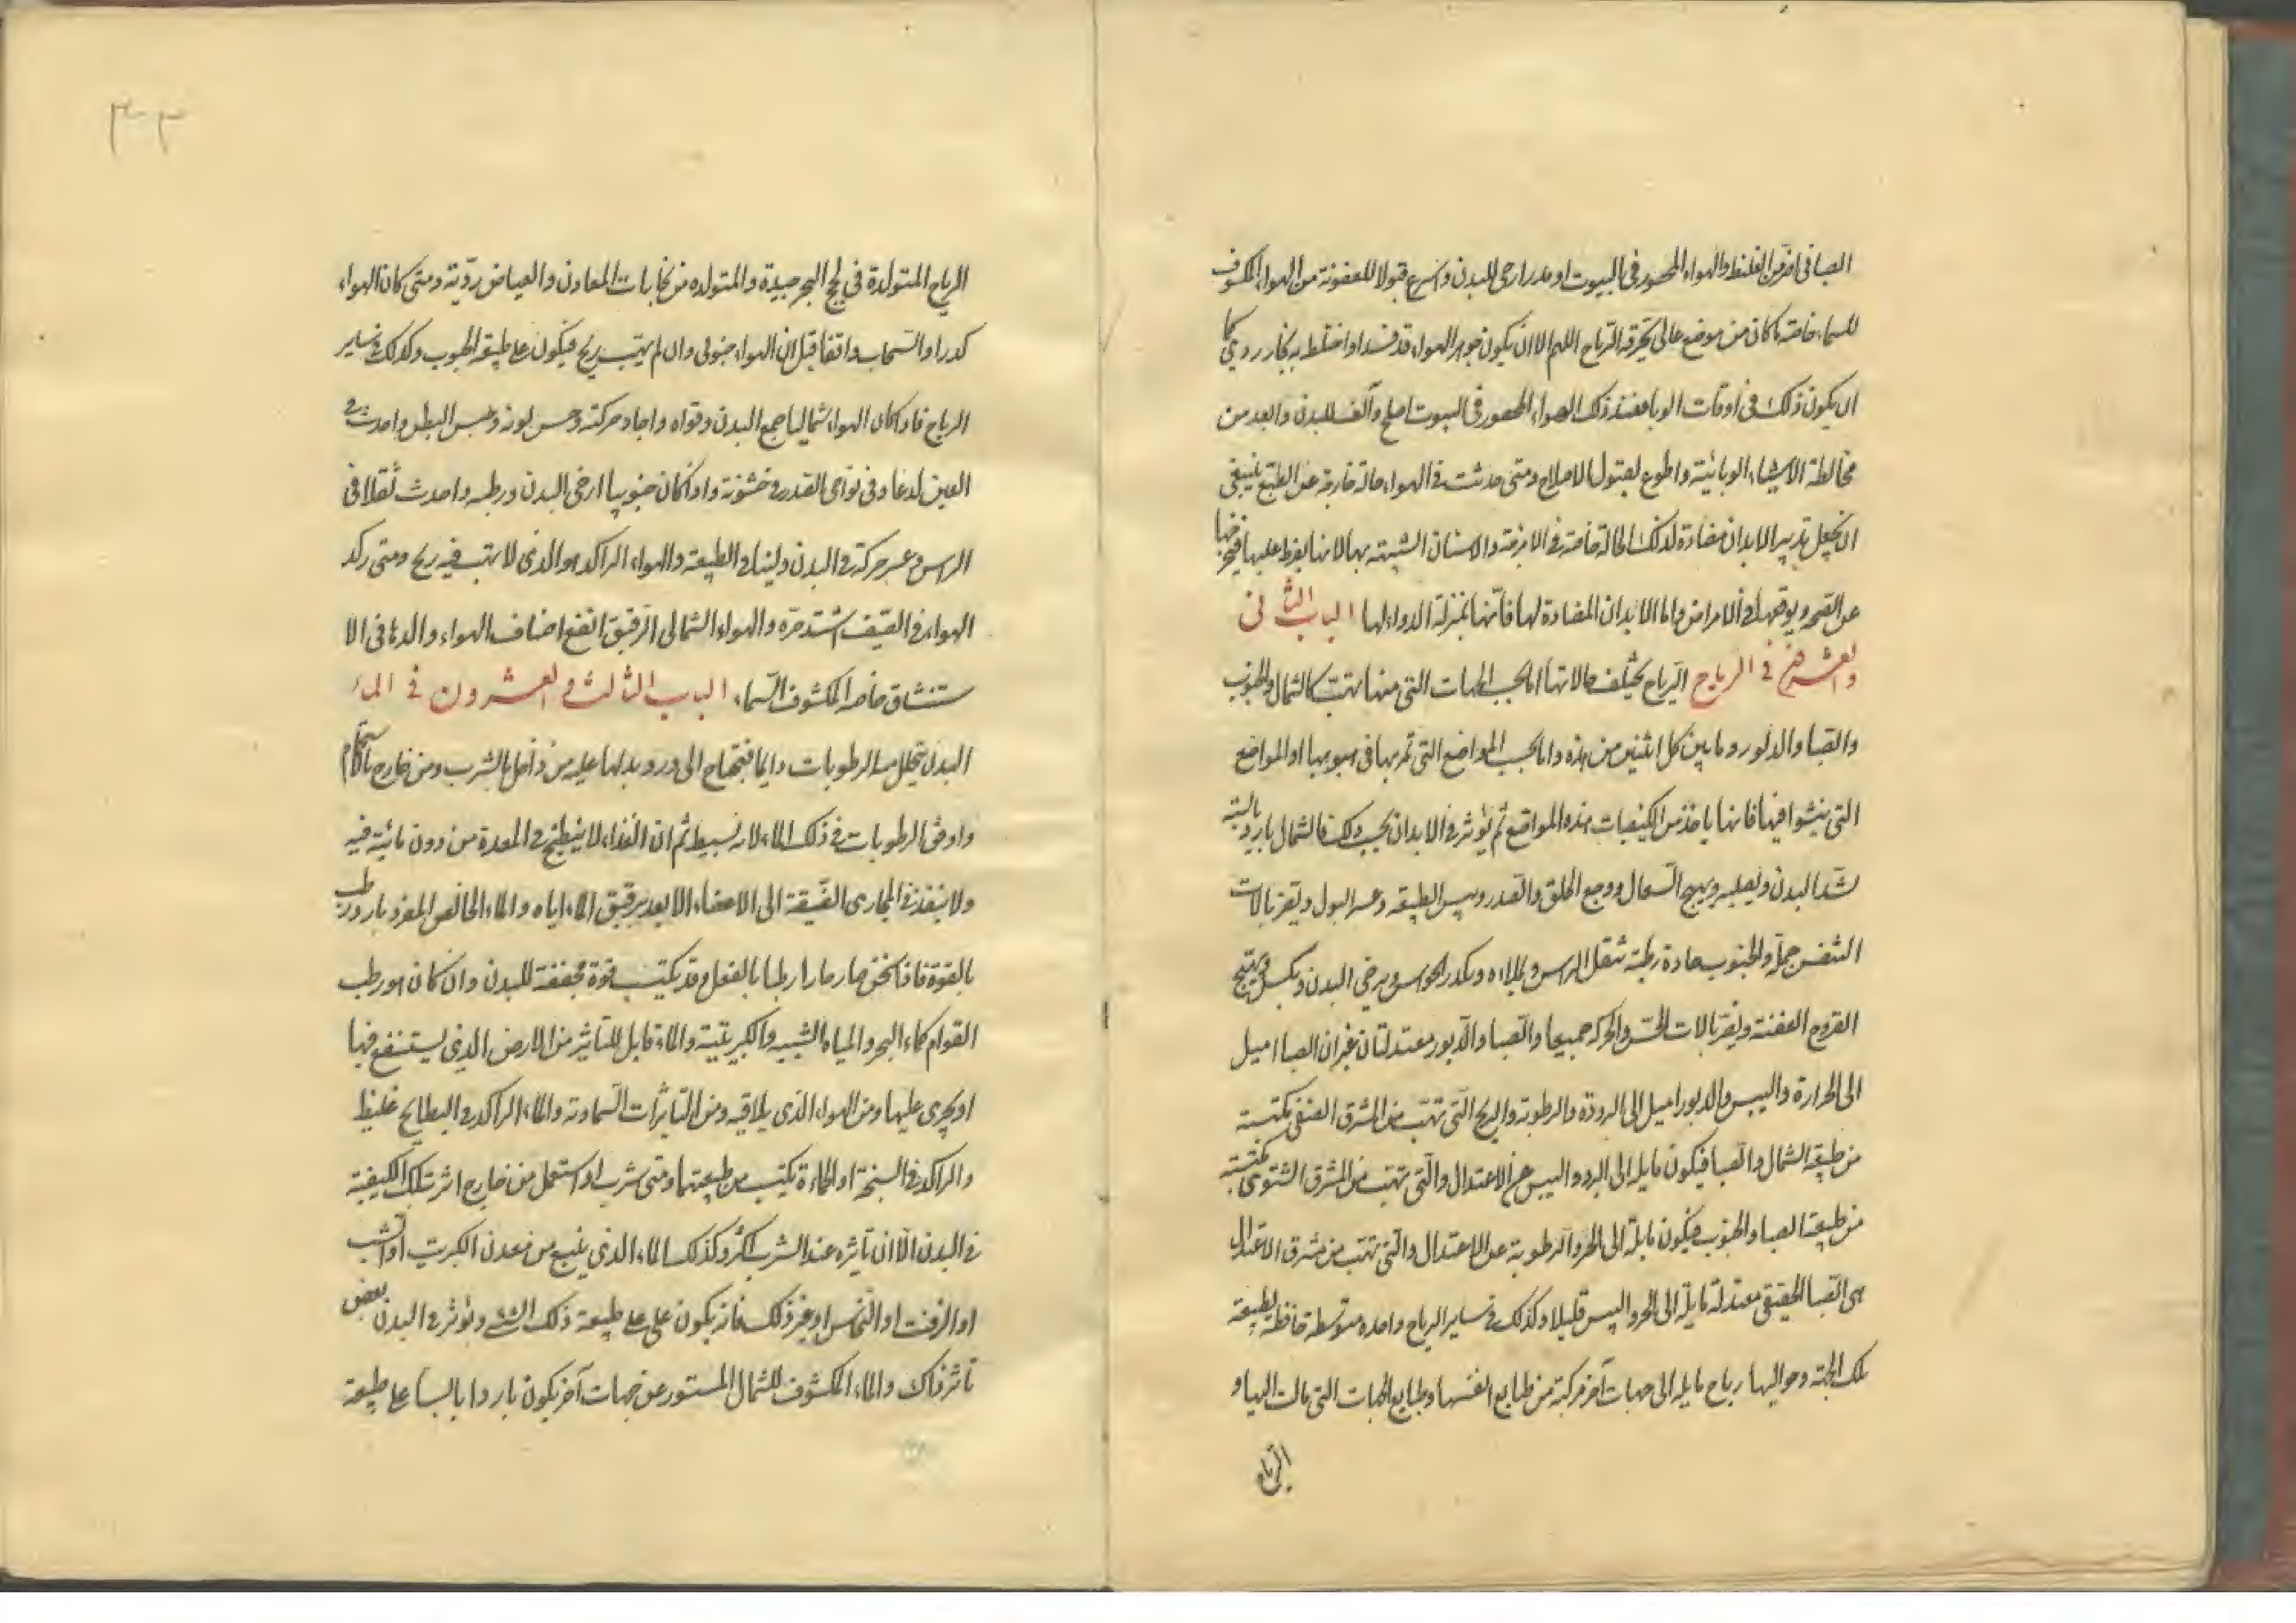 الصافى اضر من الغليظ والهواء المحصور فى البيوت او مدر ارحى للبدن واسرع قبولا للعفونة من الهواء المكشوف
للسماء خاصة ما كان من موضع عالى تخرقه الرياح اللهم الا ان يكون جوهر الهواء قد فسد او اختلط به بخار ردى كما
ان يكون ذلك فى اوقات الوبا فعند ذلك الهواء المحصور فى البيوت اصلح وآلف للبدن وابعد من
مخالطة الاشياء الوبائية واطوع لقبول الاصلاح ومتى حدثت فى الهواء حالة خارجة عن الطبع ينبغى
ان يجعل تدبير الابدان مضادة لذلك الحالة خاصة فى الامزجة والاسنان الشبيهة بها لانها يفرط عليها فيخرجها
عن الصحه ويوقعها فى الامراض واما الابدان المضادة لها فانها بمنزلة الدواء لها الباب الثانى
والعشرون فى الرياح الرياح يختلف حالاتها اما بحسب الجهات التى منها تهب كالشمال والجنوب
والصبا والدبور وما بين كل اثنين من هذه واما بحسب المواضع التى تمر بها فى هبوبها او المواضع
التى ينشوا فيها فانها ياخذ من الكيفيات هذه المواقع ثم يؤثر فى الابدان بحسب ذلك فالشمال باردة يابسة
تشد البدن ويصلبه ويهيج السعال ووجع الحلق والصدر ويبس الطبيعه وعسر البول ويضر بالات
التنفس جملة والجنوب حارة رطبة تثقل الراس ويملاءه ويكدر الحواس ويرخى البدن ويكسل ويهيج
القروح العفنة ويضر بالات الحس والحركه جميعا والصبا والدبور معتدلتان غير ان الصبا اميل
الى الحرارة واليبس والدبور اميل الى البرودة والرطوبة والريح التى تهب من المشرق الصيفى مكتسبة
من طبيعة الشمال والصبا فيكون مايلة الى البرد واليبس عن الاعتدال والتى تهب من المشرق الشتوى مكتسبة
من طبيعة الصبا والجنوب فيكون مايلة الى الحر والرطوبة عن الاعتدال والتى تهب من مشرق الاعتدال
هى الصبا الحقيقى معتدلة مايلة الى الحر واليبس قليلا وكذلك فى ساير الرياح واحدة متوسطة حافظة لطبيعة
تلك الجهة وحواليها رياح مايلة الى جهات آخر مركبة من طبايع انفسها وطبايع الجهات التى مالت اليها و
الرياح
٣٣
الرياح المتولدة فى لجج البحر جيدة والمتولده من بخارات المعادن والغياض ردّية ومتى كان الهواء
كدرا والسحاب واقفا قيل ان الهواء جنوبى وان لم يهب ريح فيكون على طبيعة الجنوب وكذلك فى ساير
الرياح فاذا كان الهواء شماليا جمع البدن وقواه واجاد حركته وحسن لونه وحبس البطن واحدث فى
العين لدعا وفى نواحى الصدر خشونة واذا كان جنوبيا ارخى البدن ورطبه واحدث ثقلا فى
الراس وعسر حركة فى البدن ولينا فى الطبيعة والهواء الراكد هو الذى لا تهب فيه ريح ومتى ركد
الهواء فى الصيف اشتد حره والهواء الشمالى الرقيق انفع اصناف الهواء والدعا فى الا
ستنشاق خاصه المكشوف للسماء الباب الثالث والعشرون فى الماء
البدن يتحلل منه الرطوبات دايما فيحتاج الى ورود بدلها عليه من داخل بالشرب ومن خارج بالاستحمام
واوفق الرطوبات فى ذلك الماء لانه بسيط ثم ان الغذاء لا ينطبخ فى المعدة من دون مائية فيه
ولا ينفذ فى المجارى الضيقة الى الاعضاء الا بعد ترقيق الماء اياه والماء الخالص المفرد بارد رطب
بالقوة فاذا سخن صار حارا رطبا بالفعل وقد يكتسب قوة مجففة للبدن وان كان هو رطب
القوام كماء البحر والمياه الشبيه والكبريتية والماء قابل للتأثير من الارض الذى يستنقع فيها
او يجرى عليها ومن الهواء الذى يلاقيه ومن التاثيرات السماوية والماء الراكد فى البطايح غليظ
والراكد فى السبخة او الحماءة يكتسب من طبيعتها ومتى شرب او استعمل من خارج اثر تلك الكيفية
فى البدن الا ان تأثيره عند الشرب اكثر وكذلك الماء الذى ينبع من معدن الكبريت او الشب
او الزفت او النحاس او غير ذلك فانه يكون على على طبيعة ذلك الشىء ويؤثر فى البدن بعض
تأثير ذاك والماء المكشوف للشمال المستور عن جهات آخر يكون باردا يابسا على طبيعة